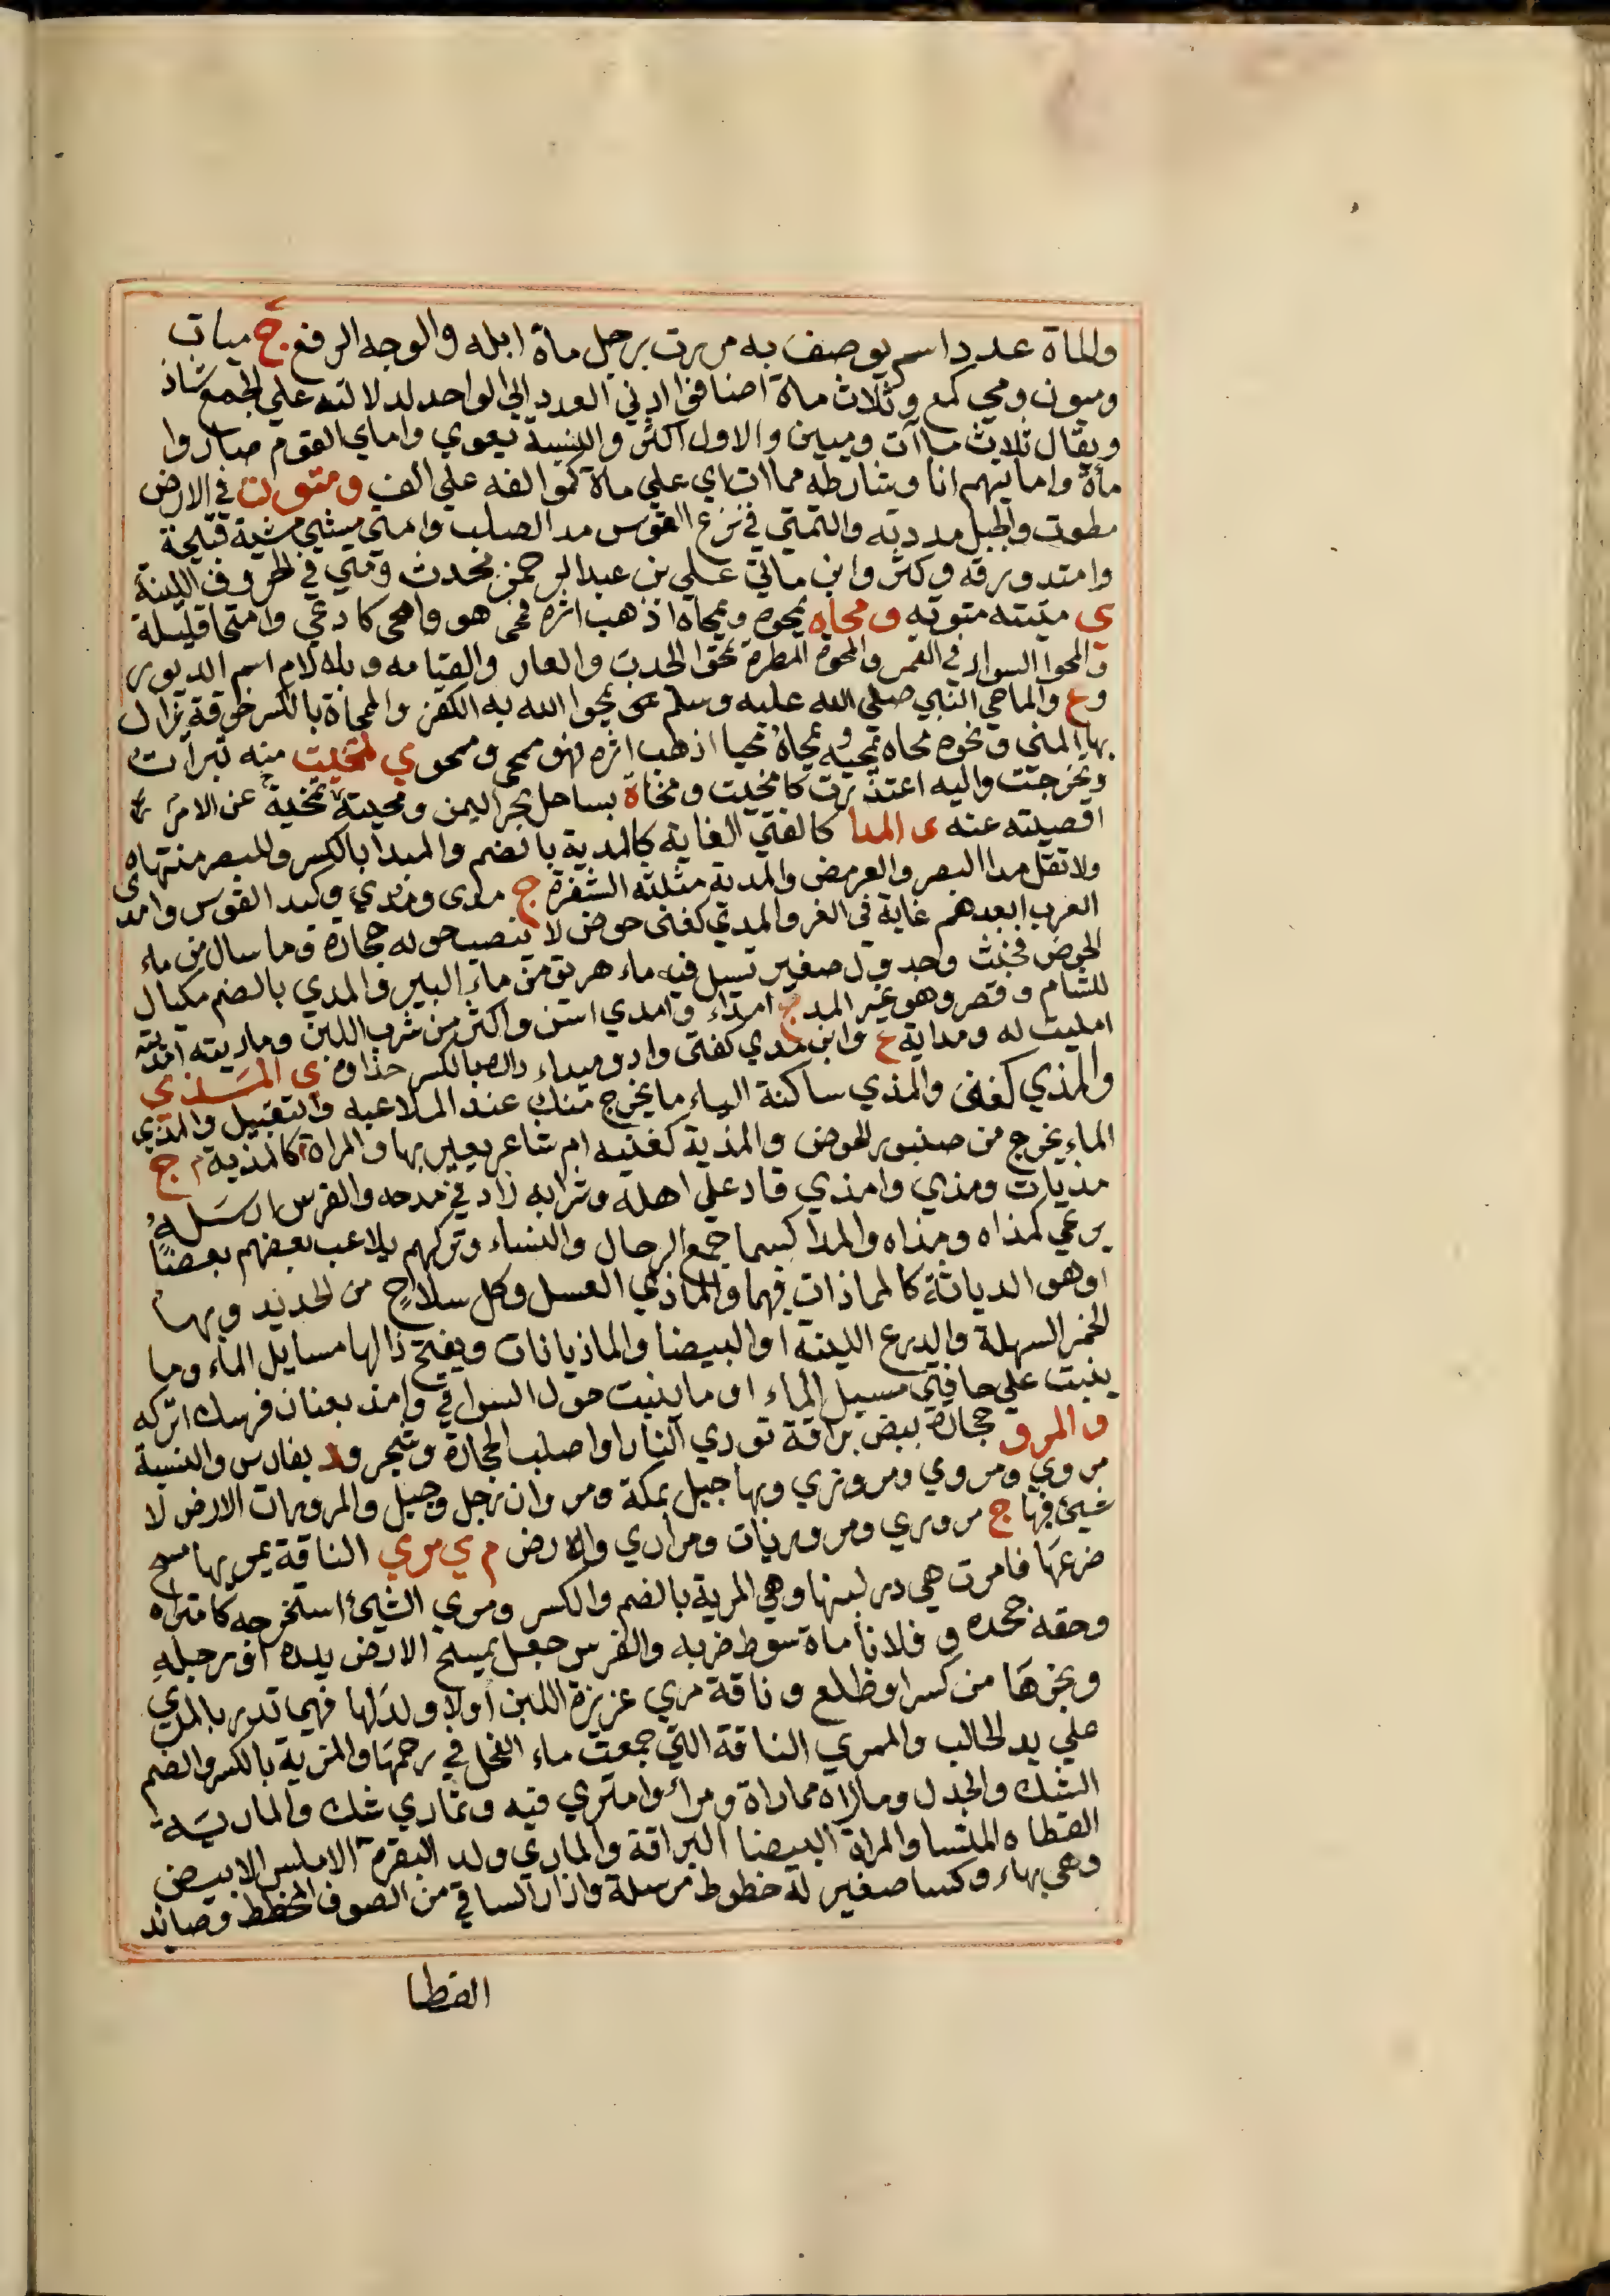 والماة عدد اسم يوصف به مررت برجل ماة ابله والوجه الرفع ج ميات
وميون ومي كمع وثلاث ماة اضافوا ادني العدد الي الواحد لدلالته علي الجمع شاذ
ويقال ثلاث ماآت ومييين والاول اكثر والنسبة يعوي واماي القوم صاروا
مأة وامايتهم انا وشارطه مماات اي علي ماة كموالفه علي الف و متوت في الارض
مطوت والحبل مددته والتمتي في نزع القوس مد الصلب وامتي مشي مشية قبيحة
وامتد ورقه وكثر وابن ماتي علي بن عبد الرحمن محدث ومتي في الحروف اللينة
ي متيته متوته و محاه يمحوه ويمحاه اذهب اثره فمحي هو وامحي كادعي وامتحا قليلة
والمحوا السواد في القمر والمحوة المطرة تمحوا الجدب والعار والقيامه وبلا لام اسم الدبور
وع والماحي النبي صلي الله عليه وسلم يمحوا الله به الكفر والممحاة بالكسر خرقة يزال
بها المني ونحوه محاه يمحيه ويمحاه محيا اذهب اثره فهو ممحي وممحو ي تمخيت منه تبرات
وتحرجت واليه اعتذرت كامخيت ومخاة بساحل بحر اليمن ومخيته تمخية عن الامر
اقصيته عنه ى المدا كالفتي الغاية كالمدية بالضم والميدا بالكسر وللبصر منتهاه
ولا تقل مدا البصر والعرمض والمدية مثلثه الشفرة ج مدى ومدي وكبد القوس وامدى
العرب ابعدهم غاية في الغز والمدي كغني حوض لا ينصب حوله حجارة وما سال من ماء
الحوض فخبث وجدول صغير تسيل فيه ماء هريق من ماء البير والمدي بالضم مكيال
للشام و قصر وهو غير المد ج امداء وامدي اسن واكثر من شرب اللبن وماديته امديته
امليت له ومداية ع وابن مدي كفتى واد وميداء بالكسر حذاوه ى المذي
والمذي كغني والمذي ساكنة الياء ما يخرج منك عند الملاعبه والتقبيل والمذي
الماء يخرج من صنبور الحوض والمذية كغنيه ام شاعر يعير بها والمراة كالمذية م ج
مذيات ومذي وامذي قاد علي اهله وشرابه زاد في مدحه والفرس ارسله
يرعي كمذاه ومذاه والمذا كسما جمع الرجال والنساء وتركهم يلاعب بعضهم بعضا
اوهو الدياثة كالمماذات فيهما والماذي العسل وكل سلاح من الحديد وبها
الخمر السهلة والدرع اللينه او البيضا والماذيانات ويفتح ذالها مسايل الماء وما
ينبت علي حافتي مسيل الماء او ما ينبت حول السواقي وامذ بعنان فرسك اتركه
و المرو حجارة بيض براقة توري النار او اصلب الحجارة وشجر ود بفارس والنسبة
مروي ومروي ومروزي وبها جبل بمكة ومروان رجل وجبل والمرورات الارض لا
شيئ فيها ج مروري ومروريات ومراري والارض م ي مري الناقة يمريها مسح
ضرعها فامرت هي در لبنها وهي المرية بالضم والكسر ومري الشيئ استخرجه كامتراه
وحقه جحده و فلانا ماة سوط ضربه والفرس جعل يمسح الارض بيده او رجله
ويجرها من كسر او ظلع و ناقة مري غزيرة اللبن او لا ولد لها فهي تدر بالمري
علي يد الحالب والممري الناقة التي جمعت ماء الفحل في رحمها والمرية بالكسر والضم
الشك والجدل وماراه مماراة ومراء وامتري فيه وتماري شك والمارية
القطاه الملسا والمراة البيضا البراقة والماري ولد البقرة الاملس الابيض
وهي بهاء وكسا صغير له خطوط مرسلة وازار الساقي من الصوف المخطط وصائد
القطا